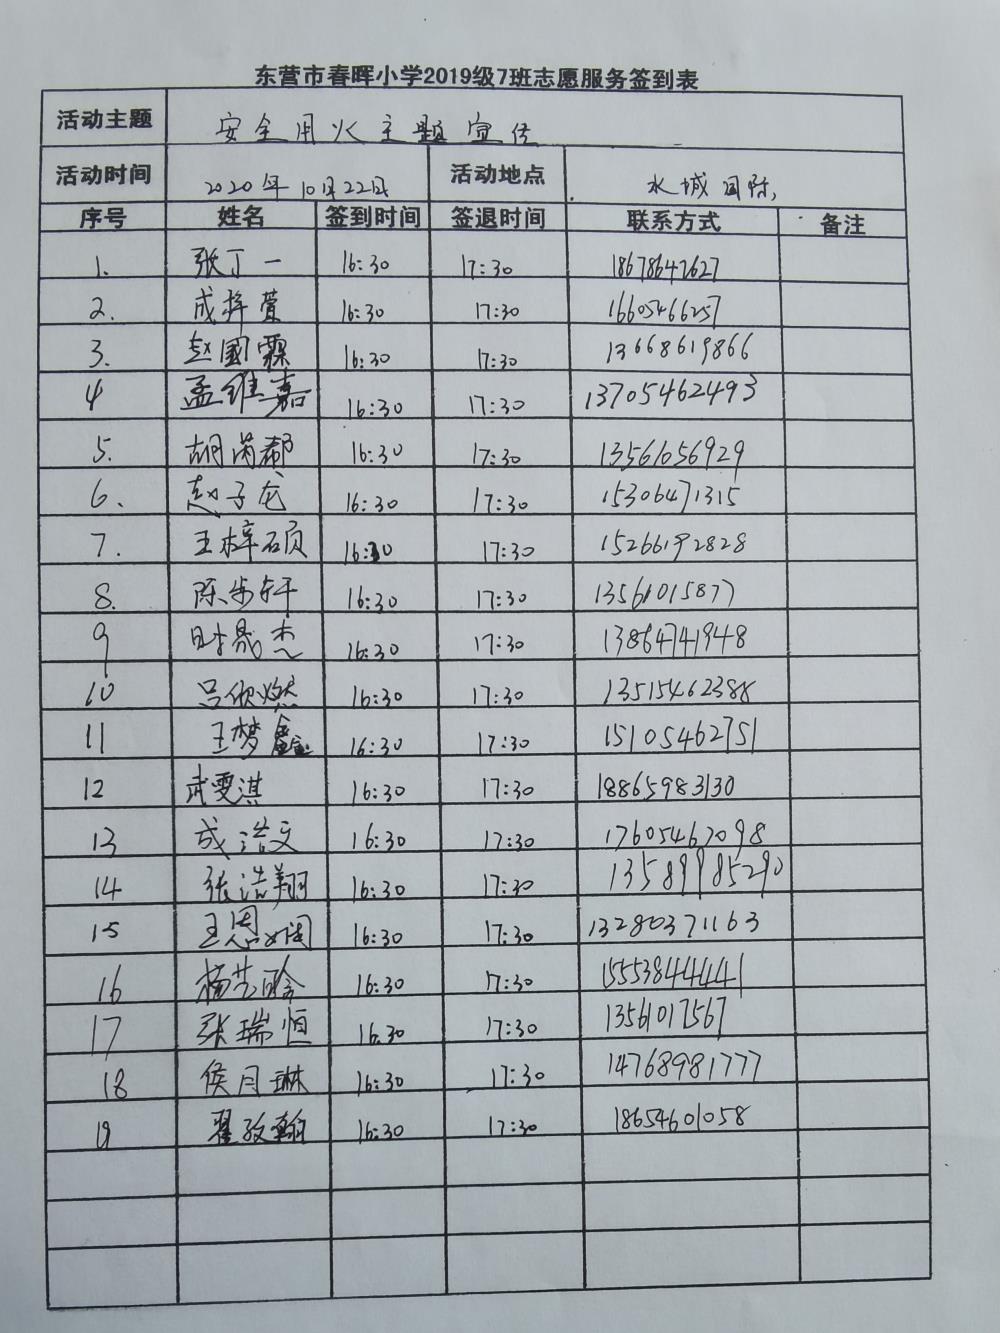 东营市春晖小学2019级7班志愿服务签到表
活动主题 安全用火主题宣传
活动时间 2020年10月22日 活动地点 水城国际,
序号 姓名 签到时间 签退时间 联系方式 备注
1. 张丁一 16:30 17:30 18678647627
2. 成梓萱 16:30 17:30 16605466257
3. 赵國霖 16:30 17:30 13668619866
4 孟维嘉 16:30 17:30 13705462493
5. 胡芮郗 16:30 17:30 13561056929
6. 赵子龙 16:30 17:30 15306471315
7. 王梓硕 16:30 17:30 15266192828
8. 陈步轩 16:30 17:30 13561015877
9 时晟杰 16:30 17:30 13864741948
10 吕欣燃 16:30 17:30 13515462388
11 王梦鑫 16:30 17:30 15105462751
12 武雯淇 16:30 17:30 18865983130
13 成浩文 16:30 17:30 17605467098
14 张浩翔 16:30 17:30 13589985290
15 王恩娴 16:30 17:30 13280371163
16 杨芝晗 16:30 17:30 15553844441
17 张瑞恒 16:30 17:30 13561017567
18 侯月琳 16:30 17:30 14768981777
19 翟孜翰 16:30 17:30 18654601058